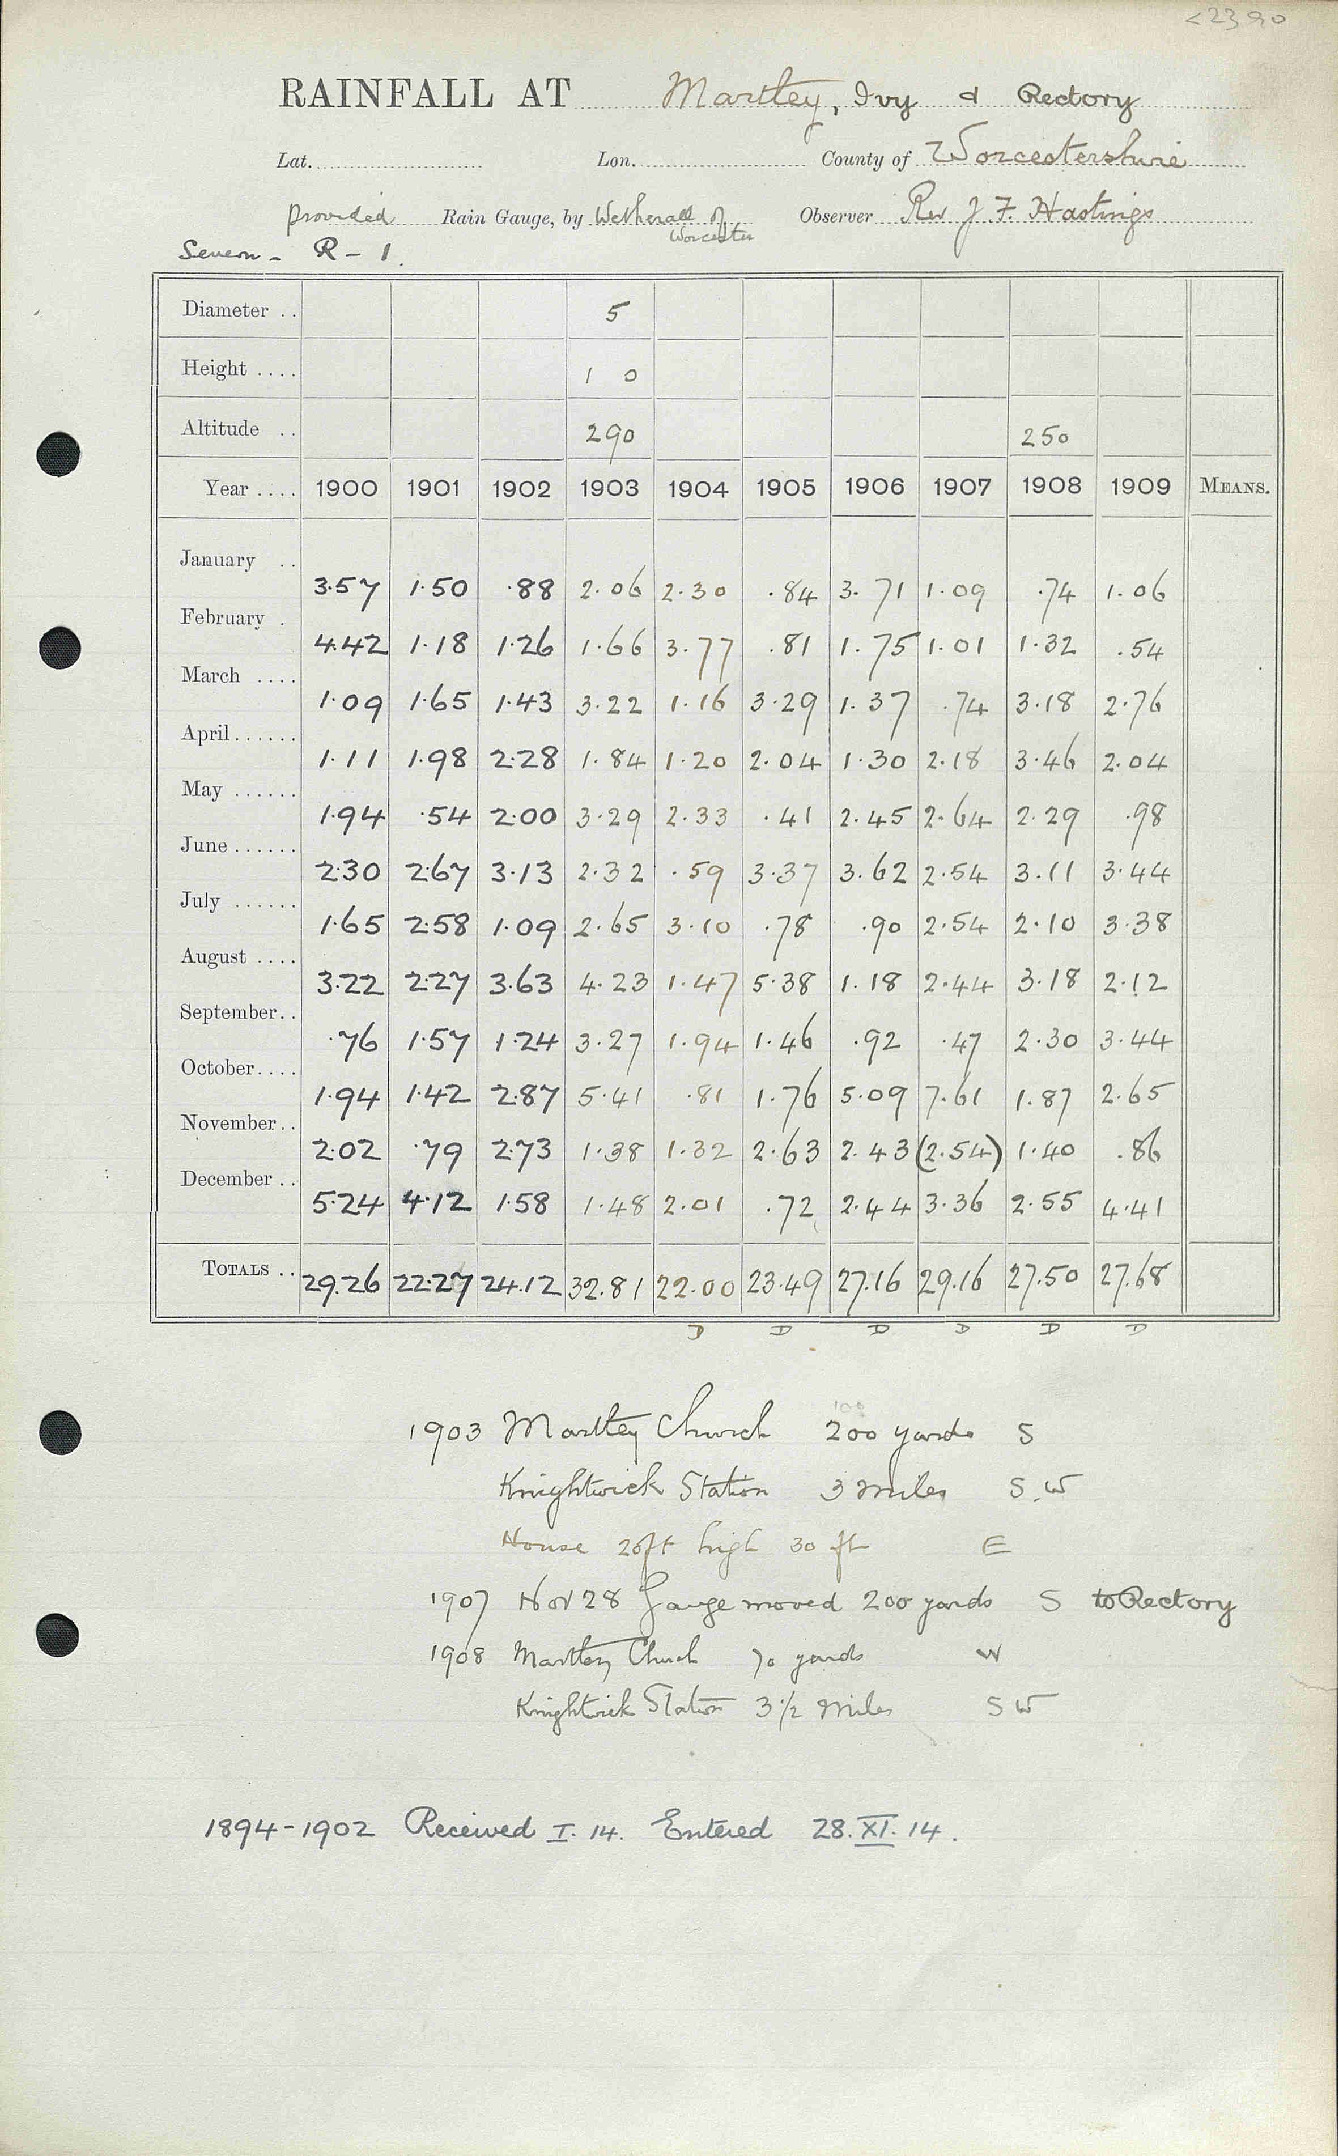 <2390
RAINFALL AT Martley, Ivy & Rectory
Lat. Lon. County of Worcestershire
provided Rain Gauge, by Wetherall of Worcester Observer Rev J. F. Hastings
Severn - R - 1.
Diameter .. 5
Height .... 1 0
Altitude .. 290 250
Year .... 1900 1901 1902 1903 1904 1905 1906 1907 1908 1909 MEANS.
January .. 3.57 1.50 .88 2.06 2.30 .84 3.71 1.09 .74 1.06
February . 4.42 1.18 1.26 1.66 3.77 .81 1.75 1.01 1.32 .54
March .... 1.09 1.65 1.43 3.22 1.16 3.29 1.37 .74 3.18 2.76
April ...... 1.11 1.98 2.28 1.84 1.20 2.04 1.30 2.18 3.46 2.04
May ...... 1.94 .54 2.00 3.29 2.33 .41 2.45 2.64 2.29 .98
June ...... 2.30 2.67 3.13 2.32 .59 3.37 3.62 2.54 3.11 3.44
July ...... 1.65 2.58 1.09 2.65 3.10 .78 .90 2.54 2.10 3.38
August .... 3.22 2.27 3.63 4.23 1.47 5.38 1.18 2.44 3.18 2.12
September .. .76 1.57 1.24 3.27 1.94 1.46 .92 .47 2.30 3.44
October .... 1.94 1.42 2.87 5.41 .81 1.76 5.09 7.61 1.87 2.65
November .. 2.02 .79 2.73 1.38 1.32 2.63 2.43 (2.54) 1.40 .86
December .. 5.24 4.12 1.58 1.48 2.01 .72 2.44 3.36 2.55 4.41
TOTALS .. 29.26 22.27 24.12 32.81 22.00 23.49 27.16 29.16 27.50 27.68
D D D D D D
1903 Martley Church 200 yards S
Knightwick Station 3 miles S.W
House 26ft high 30 ft E
1907 Nov 28 Gauge moved 200 yards S to Rectory
1908 Martley Church 70 yards W
Knightwick Station 3 1/2 miles S W
1894-1902 Received I. 14. Entered 28. XI. 14.